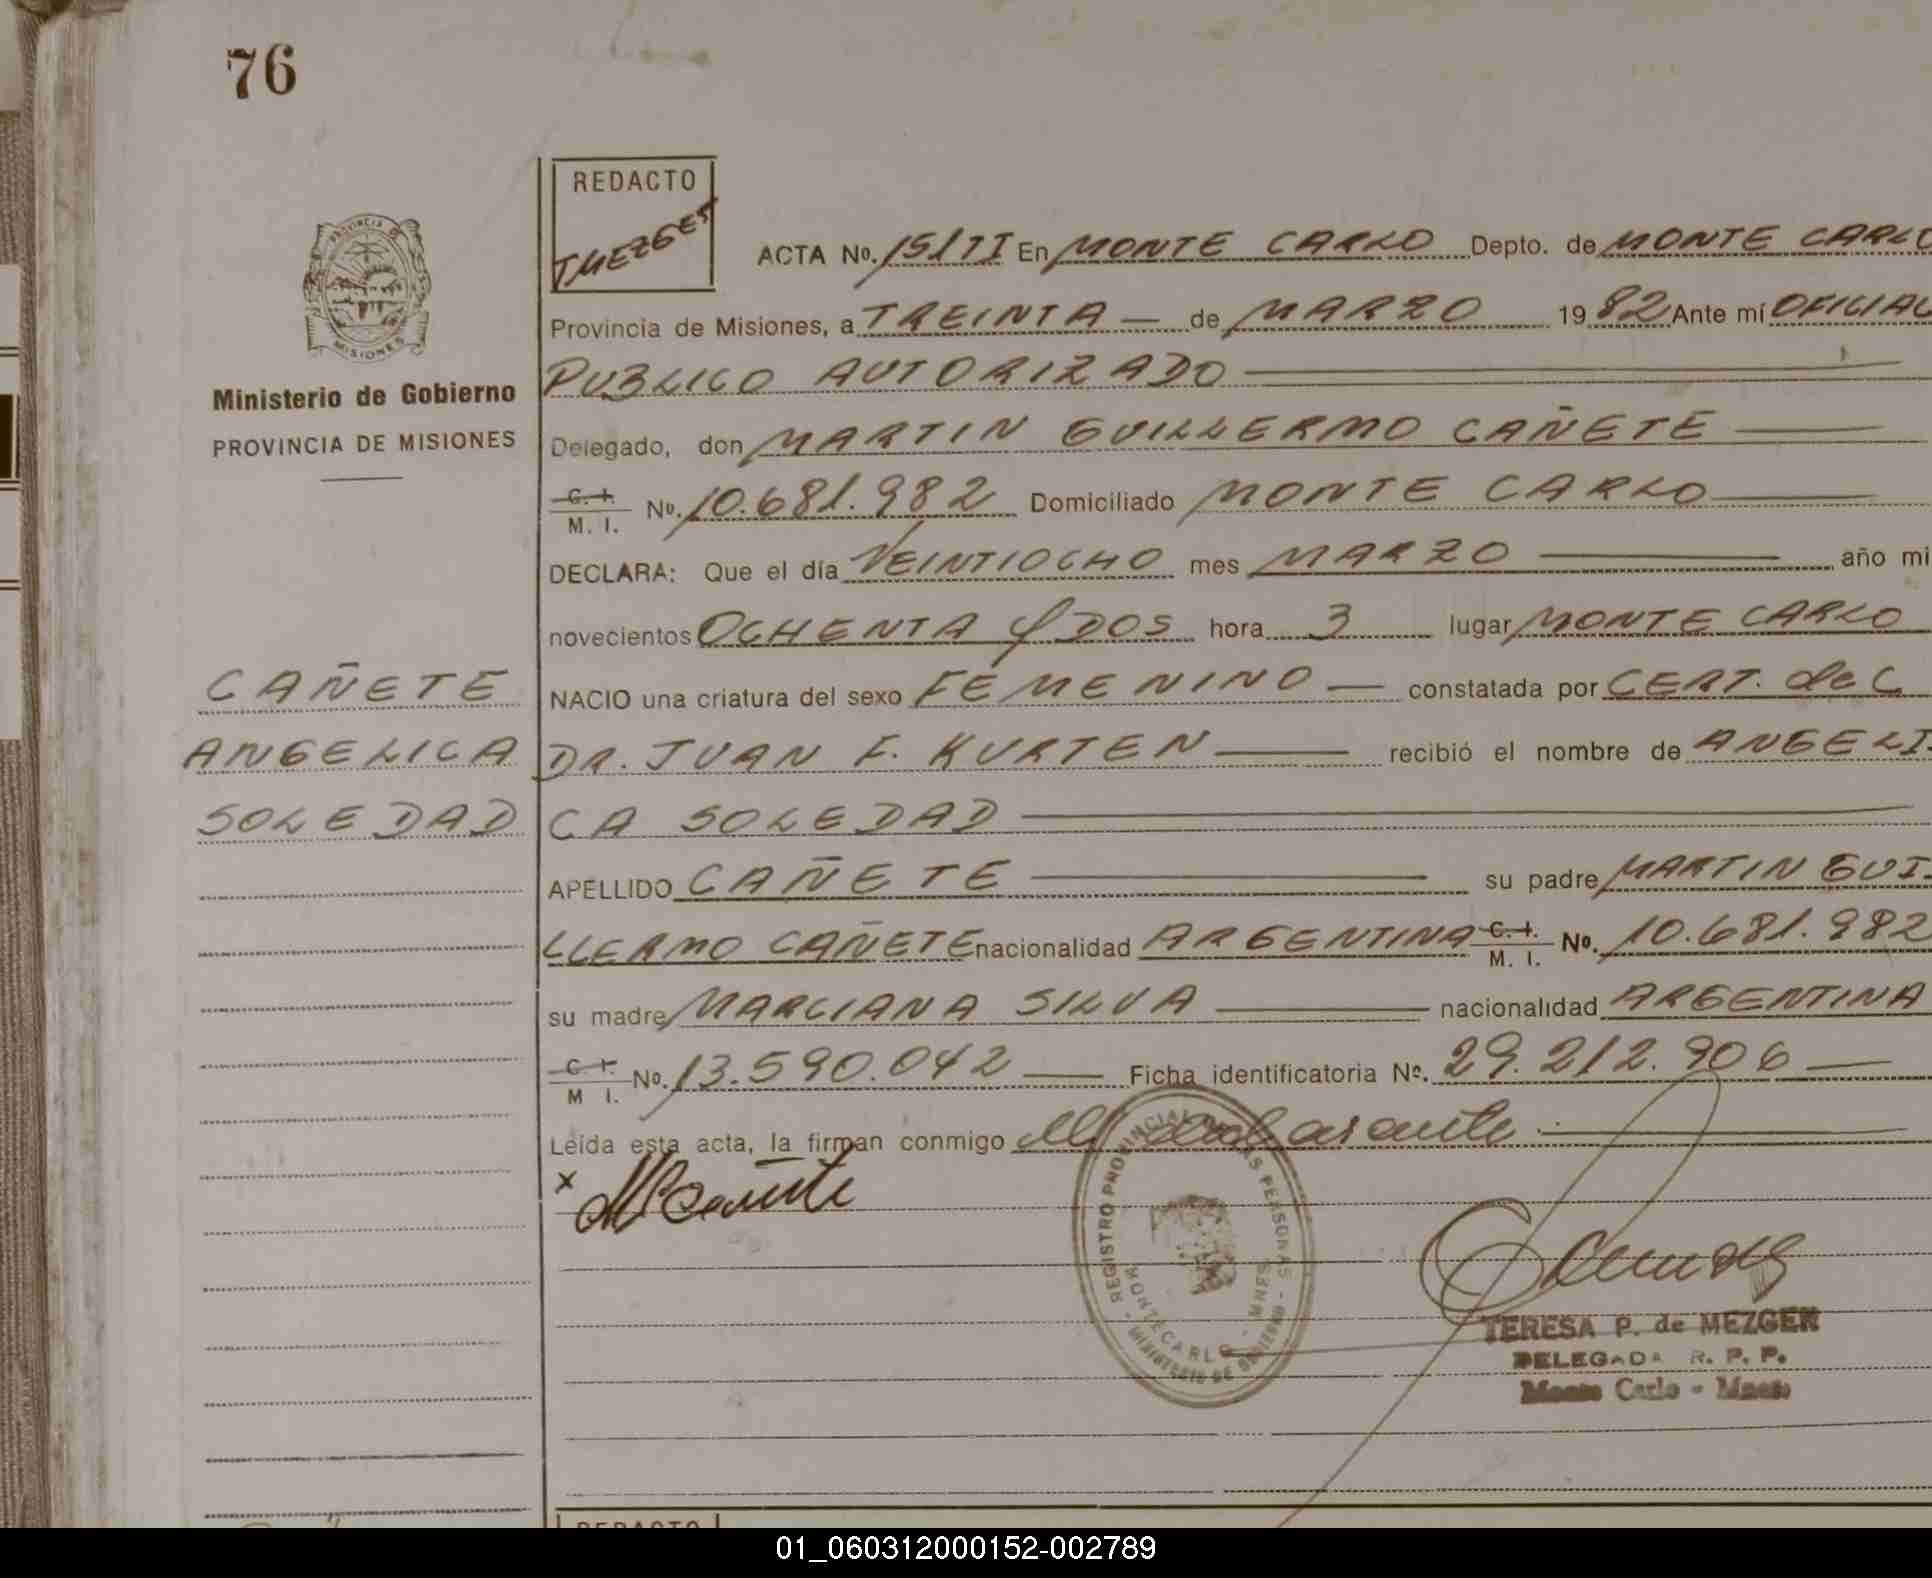 76
REDACTO
TMEZGER
PROVINCIA D
MISIONES
Ministerio de Gobierno
PROVINCIA DE MISIONES
CAÑETE
ANGELICA
SOLEDAD
ACTA No. 151TI En MONTE CARLO Depto. de MONTE CARLO
Provincia de Misiones, a TREINTA — de MARZO 1982 Ante mí OFICIAL
PUBLICO AUTORIZADO
Delegado, don MARTIN GUILLERMO CAÑETE
C. I. M. I. No. 10.681.982 Domiciliado MONTE CARLO
DECLARA: Que el día VEINTIOCHO mes MARZO año mi
novecientos OCHENTA Y DOS hora 3 lugar MONTE CARLO
NACIO una criatura del sexo FEMENINO — constatada por CERT. de C
DR. JUAN F. KURTEN recibió el nombre de ANGELI
CA SOLEDAD
APELLIDO CAÑETE su padre MARTIN GUI-
LLERMO CAÑETE nacionalidad ARGENTINA C. I. M. I. No. 10.681.982
su madre MARCIANA SILVA nacionalidad ARGENTINA
C I. M I. No. 13.590.042 — Ficha identificatoria No. 29.212.906 —
Leída esta acta, la firman conmigo
x
REGISTRO PROVINCIAL PERSONAS
MONTECARLO - MNES
MINISTERIO DE GOBIERNO
TERESA P. de MEZGER
DELEGADA R. P. P.
Monte Carlo - Mnes
REDACTO
01_060312000152-002789